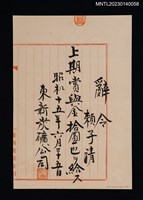 MNTL20230140058
辭令
賴子清
上期賞與金拾圓也ヲ給ス
昭和十五年六月二十五日
東新炭礦公司